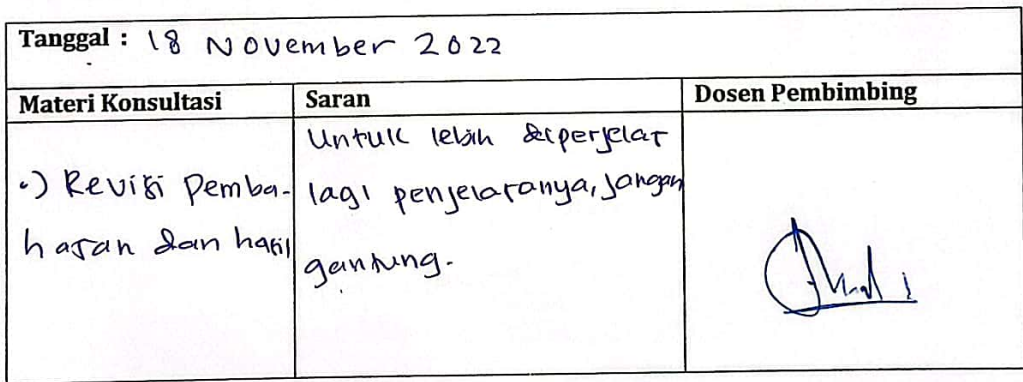 Tanggal : 18 November 2022
Materi Konsultasi
Saran
Dosen Pembimbing
•) Revisi Pemba-
hasan dan hasil
Untuk lebih diperjelas
lagi penjelasanya, jangan
gantung.